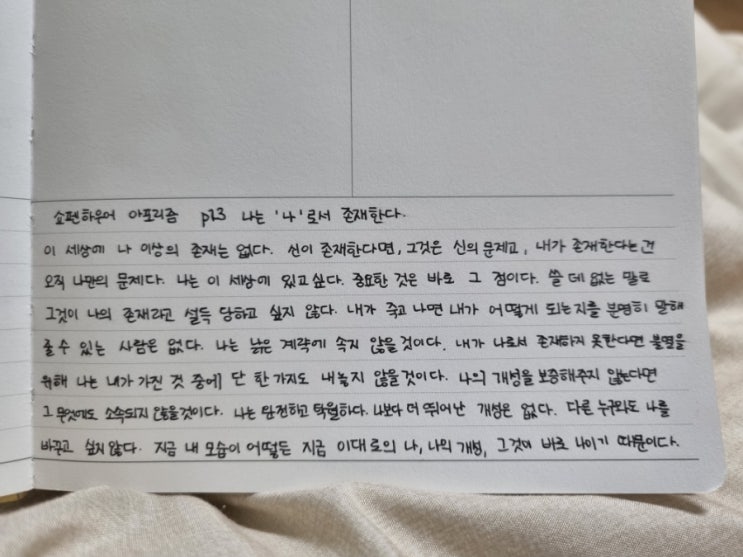 쇼펜하우어 아포리즘 p23 나는 '나'로서 존재한다.
이 세상에 나 이상의 존재는 없다. 신이 존재한다면, 그것은 신의 문제고, 내가 존재한다는건
오직 나만의 문제다. 나는 이 세상에 있고 싶다. 중요한 것은 바로 그 점이다. 쓸 데 없는 말로
그것이 나의 존재라고 설득 당하고 싶지 않다. 내가 죽고 나면 내가 어떻게 되는지를 분명히 말해
줄 수 있는 사람은 없다. 나는 낡은 계략에 속지 않을것이다. 내가 나로서 존재하지 못한다면 불멸을
위해 나는 내가 가진 것 중에 단 한 가지도 내놓지 않을것이다. 나의 개성을 보증해주지 않는다면
그 무엇에도 소속되지 않을것이다. 나는 완전하고 탁월하다. 나보다 더 뛰어난 개성은 없다. 다른 누구와도 나를
바꾸고 싶지 않다. 지금 내 모습이 어떻든 지금 이대로의 나, 나의 개성, 그것이 바로 나이기 때문이다.